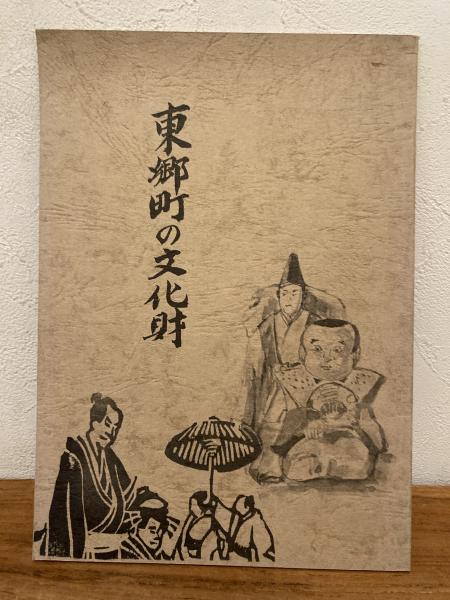 東郷町の文化財